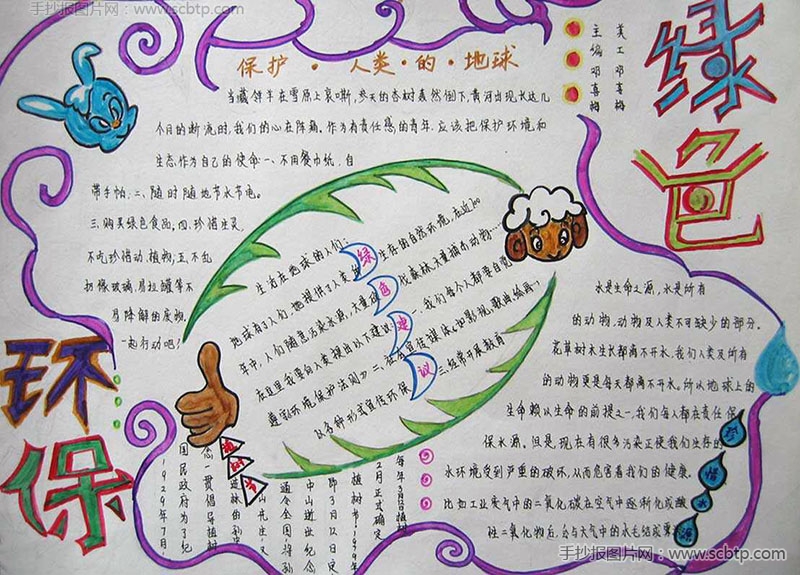 手抄报图片网：www.scbtp.com
绿色
环保
主编 邓喜梅
美工 邓喜梅
保护·人类·的·地球
当藏羚羊在雪原上哀嘶,参天的杏树轰然倒下,黄河出现长达几
个月的断流时,我们的心在阵痛。作为有责任感的青年,应该把保护环境和
生态作为自己的使命一、不用餐巾纸,自
带手帕,二、随时随地节水节电。
三、购买绿色食品,四、珍惜生灵,
不吃珍惜动植物,五、不乱
扔像玻璃,易拉罐等不
易降解的废物,
一起行动吧!
生活在地球的人们:
地球有了人们,她提供了人支
绿色建议
生存的自然环境,在近100
年中,人们随意污染水源,大量
伐森林,大量捕杀动物……
在这里我要向人类提出以下建议
一、我们每个人都要自觉
遵守环境保护法则
二、在各宣传媒体,如影视,歌曲绘画
以各种形式宣传环保
三、经常开展教育
水是生命之源,水是所有
的动物,动物及人类不可缺少的部分。
花草树木生长都离不开水,我们人类及所有
的动物更是每天都离不开水。所以地球上的
生命赖以生命的前提之一,我们每人都在责任保
保水源。但是,现在有很多污染正使我们生存的
水环境受到严重的破坏,从而危害着我们的健康,
比如工业废气中的二氧化碳在空气中逐渐化成酸
性二氧化物后,会与大气中的水毛结成
珍惜水源
植树节
每年3月12日植树
2月正式确定
植树节,1979年
即3月12日定
中山逝世纪念
通令全国,将孙
山先生又
造林的孙
念一贯倡导植树
国民政府为了纪
1929年7月
手抄报图片网：www.scbtp.com